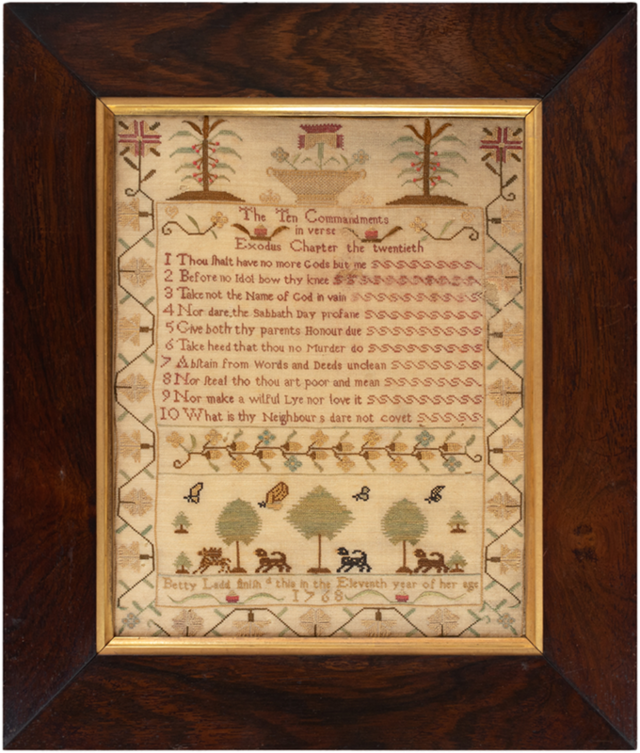 The Ten Commandments
in verse
Exodus Chapter the twentieth
1 Thou ſhalt have no more Gods but me
2 Before no Idol bow thy knee
3 Take not the Name of God in vain
4 Nor dare the Sabbath Day profane
5 Give both thy parents Honour due
6 Take heed that thou no Murder do
7 Abſtain from Words and Deeds unclean
8 Nor ſteal tho thou art poor and mean
9 Nor make a wilful Lye nor love it
10 What is thy Neighbours dare not covet
Betty Ladd finiſh d this in the Eleventh year of her age
1768